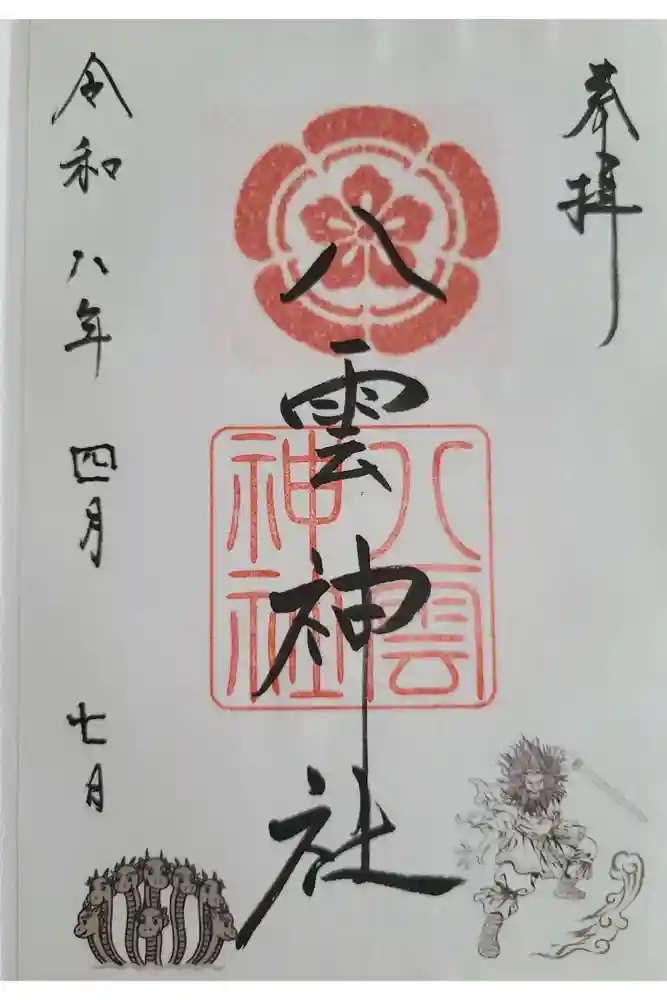 奉拝
八雲神社
八雲
神社
令和八年四月七月